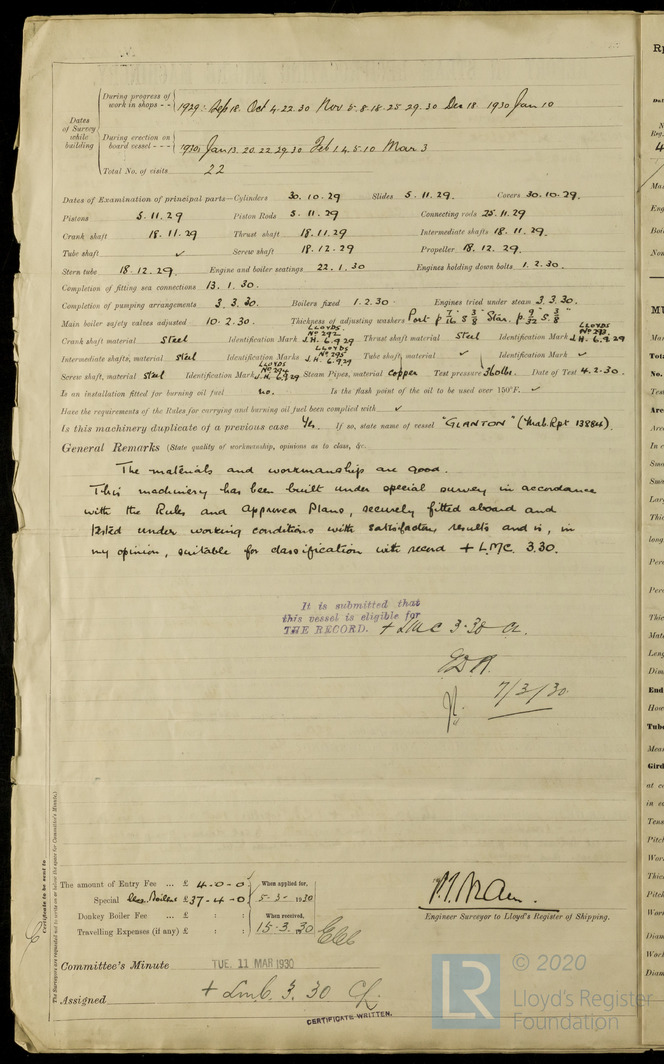 Dates of Survey while building
During progress of work in shops - - 1929: Sep 18. Oct 4. 22. 30 Nov 5. 8. 18. 25. 29. 30 Dec 18. 1930 Jan 10
During erection on board vessel - - - 1930: Jan 13. 20. 22. 29. 30 Feb 1. 4. 5. 10 Mar 3
Total No. of visits 22
Dates of Examination of principal parts—Cylinders 30. 10. 29 Slides 5. 11. 29. Covers 30. 10. 29.
Pistons 5. 11. 29 Piston Rods 5. 11. 29 Connecting rods 25. 11. 29
Crank shaft 18. 11. 29 Thrust shaft 18. 11. 29 Intermediate shafts 18. 11. 29.
Tube shaft ✓ Screw shaft 18. 12. 29 Propeller 18. 12. 29.
Stern tube 18. 12. 29. Engine and boiler seatings 22. 1. 30 Engines holding down bolts 1. 2. 30.
Completion of fitting sea connections 13. 1. 30.
Completion of pumping arrangements 3. 3. 30. Boilers fixed 1. 2. 30 Engines tried under steam 3. 3. 30.
Main boiler safety valves adjusted 10. 2. 30. Thickness of adjusting washers Port. p 7/16 s 3/8 Star. p 9/32 s 3/8
Crank shaft material Steel Identification Mark LLOYDS No 292 J.H. 6.9.29 Thrust shaft material Steel Identification Mark LLOYDS No 293 J.H. 6.9.29
Intermediate shafts, material Steel Identification Marks LLOYDS No 295 J.H. 6.9.29 Tube shaft, material ✓ Identification Mark ✓
Screw shaft, material Steel Identification Mark LLOYDS No 294 J.H. 6.9.29 Steam Pipes, material Copper Test pressure 360 lbs. Date of Test 4. 2. 30.
Is an installation fitted for burning oil fuel no. Is the flash point of the oil to be used over 150°F. ✓
Have the requirements of the Rules for carrying and burning oil fuel been complied with ✓
Is this machinery duplicate of a previous case Yes. If so, state name of vessel "GLANTON" (Mab. Rpt 13884).
General Remarks (State quality of workmanship, opinions as to class, &c.
The materials and workmanship are good.
This machinery has been built under special survey in accordance
with the Rules and Approved Plans, securely fitted aboard and
tested under working conditions with satisfactory results and is, in
my opinion, suitable for classification with record + LMC. 3.30.
It is submitted that
this vessel is eligible for
THE RECORD. + LMC 3.30 CL.
7/3/30
The amount of Entry Fee ... £ 4 - 0 - 0 When applied for,
Special £ 37 - 4 - 0 5 - 3 - 1930
Donkey Boiler Fee ... £ : : When received,
Travelling Expenses (if any) £ : : 15. 3. 30
Engineer Surveyor to Lloyd's Register of Shipping.
Committee's Minute TUE. 11 MAR 1930
Assigned + LMC. 3. 30 CL
CERTIFICATE WRITTEN.
Certificate to be sent to
(The Surveyors are requested not to write on or below the space for Committee's Minute.)
LR © 2020
Lloyd's Register
Foundation